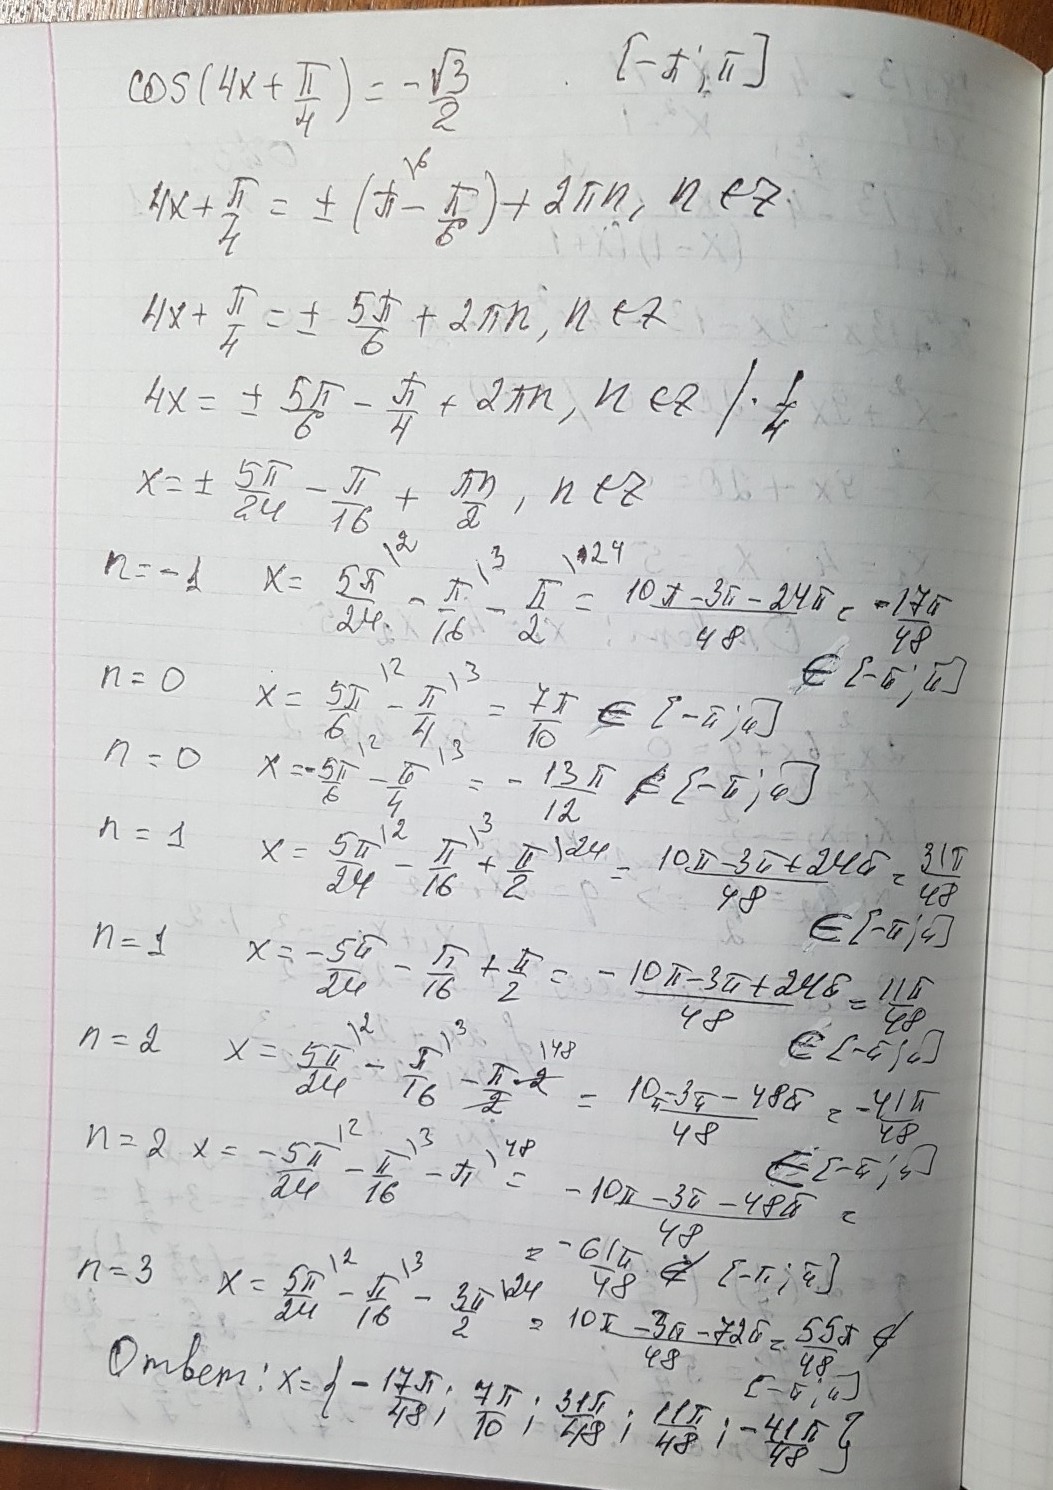 cos(4x + π/4) = -√3/2 [-π; π]
4x + π/4 = ± (π\6 - π/6) + 2πn, n ∈ z.
4x + π/4 = ± 5π/6 + 2πn, n ∈ z
4x = ± 5π/6 - π/4 + 2πn, n ∈ z / · 1/4
x = ± 5π/24 - π/16 + πn/2, n ∈ z
n = -1 x = 5π/24\2 - π/16\3 - π/2\24 = (10π - 3π - 24π)/48 = -17π/48
∈ [-π; π]
n = 0 x = 5π/6\2 - π/4\3 = 7π/10 ∈ [-π; π]
n = 0 x = -5π/6\2 - π/4\3 = -13π/12 ∉ [-π; π]
n = 1 x = 5π/24\2 - π/16\3 + π/2\24 = (10π - 3π + 24π)/48 = 31π/48
∈ [-π; π]
n = 1 x = -5π/24 - π/16 + π/2 = (-10π - 3π + 24π)/48 = 11π/48
∈ [-π; π]
n = 2 x = 5π/24\2 - π/16\3 - π/2·2\48 = (10π - 3π - 48π)/48 = -41π/48
∈ [-π; π]
n = 2 x = -5π/24\2 - π/16\3 - π\48 = (-10π - 3π - 48π)/48 =
= -61π/48 ∉ [-π; π]
n = 3 x = 5π/24\2 - π/16\3 - 3π/2\24 = (10π - 3π - 72π)/48 = 55π/48 ∉
[-π; π]
Ответ: x = { -17π/48; 7π/10; 31π/48; 11π/48; -41π/48 }